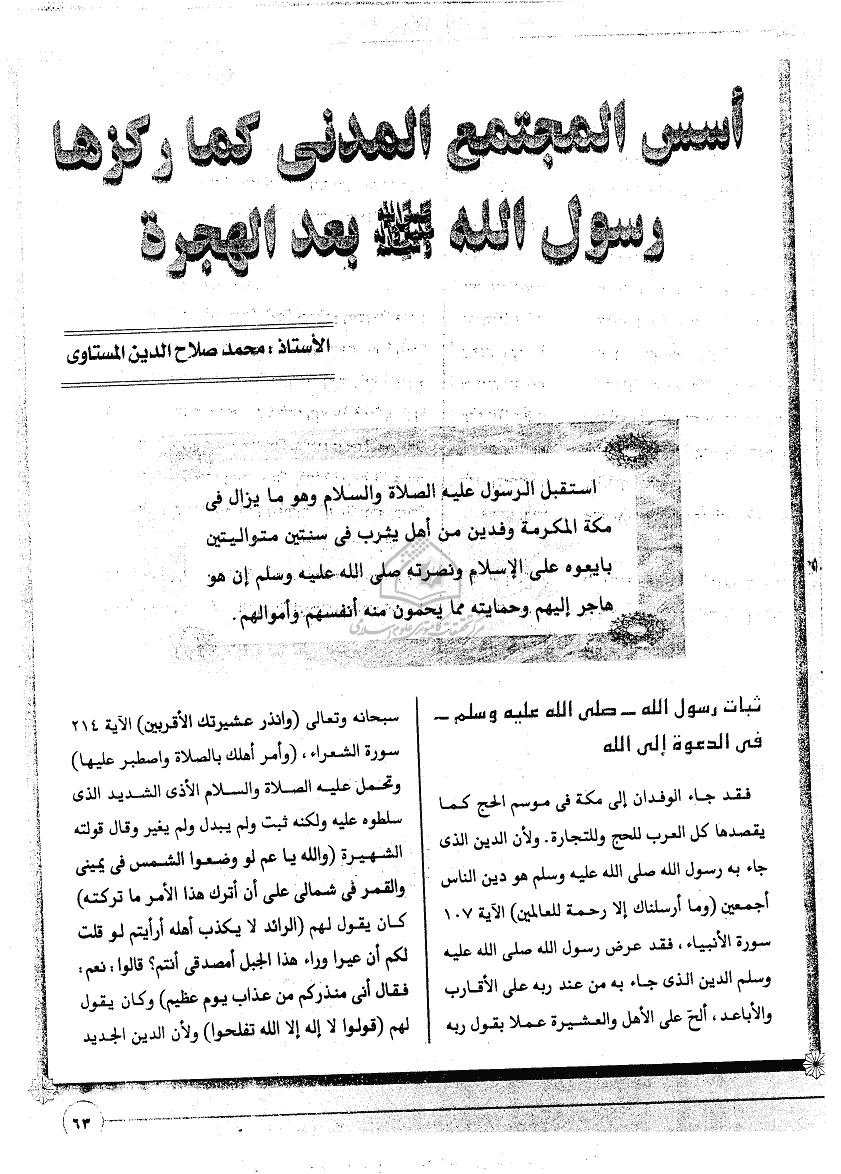 أسس المجتمع المدنى كما ركزها
رسول الله ﷺ بعد الهجرة
الأستاذ : محمد صلاح الدين المستاوى
استقبل الرسول عليه الصلاة والسلام وهو ما يزال فى
مكة المكرمة وفدين من أهل يثرب فى سنتين متواليتين
بايعوه على الإسلام ونصرته صلى الله عليه وسلم إن هو
هاجر إليهم وحمايته مما يحمون منه أنفسهم وأموالهم .
ثبات رسول الله ـ صلى الله عليه وسلم ـ
فى الدعوة إلى الله
فقد جاء الوفدان إلى مكة فى موسم الحج كما
يقصدها كل العرب للحج وللتجارة . ولأن الدين الذى
جاء به رسول الله صلى الله عليه وسلم هو دين الناس
أجمعين (وما أرسلناك إلا رحمة للعالمين) الآية ١٠٧
سورة الأنبياء ، فقد عرض رسول الله صلى الله عليه
وسلم الدين الذى جاء به من عند ربه على الأقارب
والأباعد ، ألحّ على الأهل والعشيرة عملا بقول ربه
سبحانه وتعالى (وانذر عشيرتك الأقربين) الآية ٢١٤
سورة الشعراء ، (وأمر أهلك بالصلاة واصطبر عليها)
وتحمل عليه الصلاة والسلام الأذى الشديد الذى
سلطوه عليه ولكنه ثبت ولم يبدل ولم يغير وقال قولته
الشهيرة (والله يا عم لو وضعوا الشمس فى يمينى
والقمر فى شمالى على أن أترك هذا الأمر ما تركته)
كان يقول لهم (الرائد لا يكذب أهله أرأيتم لو قلت
لكم أن عيرا وراء هذا الجبل أمصدقى أنتم؟ قالوا : نعم :
فقال أنى منذركم من عذاب يوم عظيم) وكان يقول
لهم (قولوا لا إله إلا الله تفلحوا) ولأن الدين الجديد
٦٣